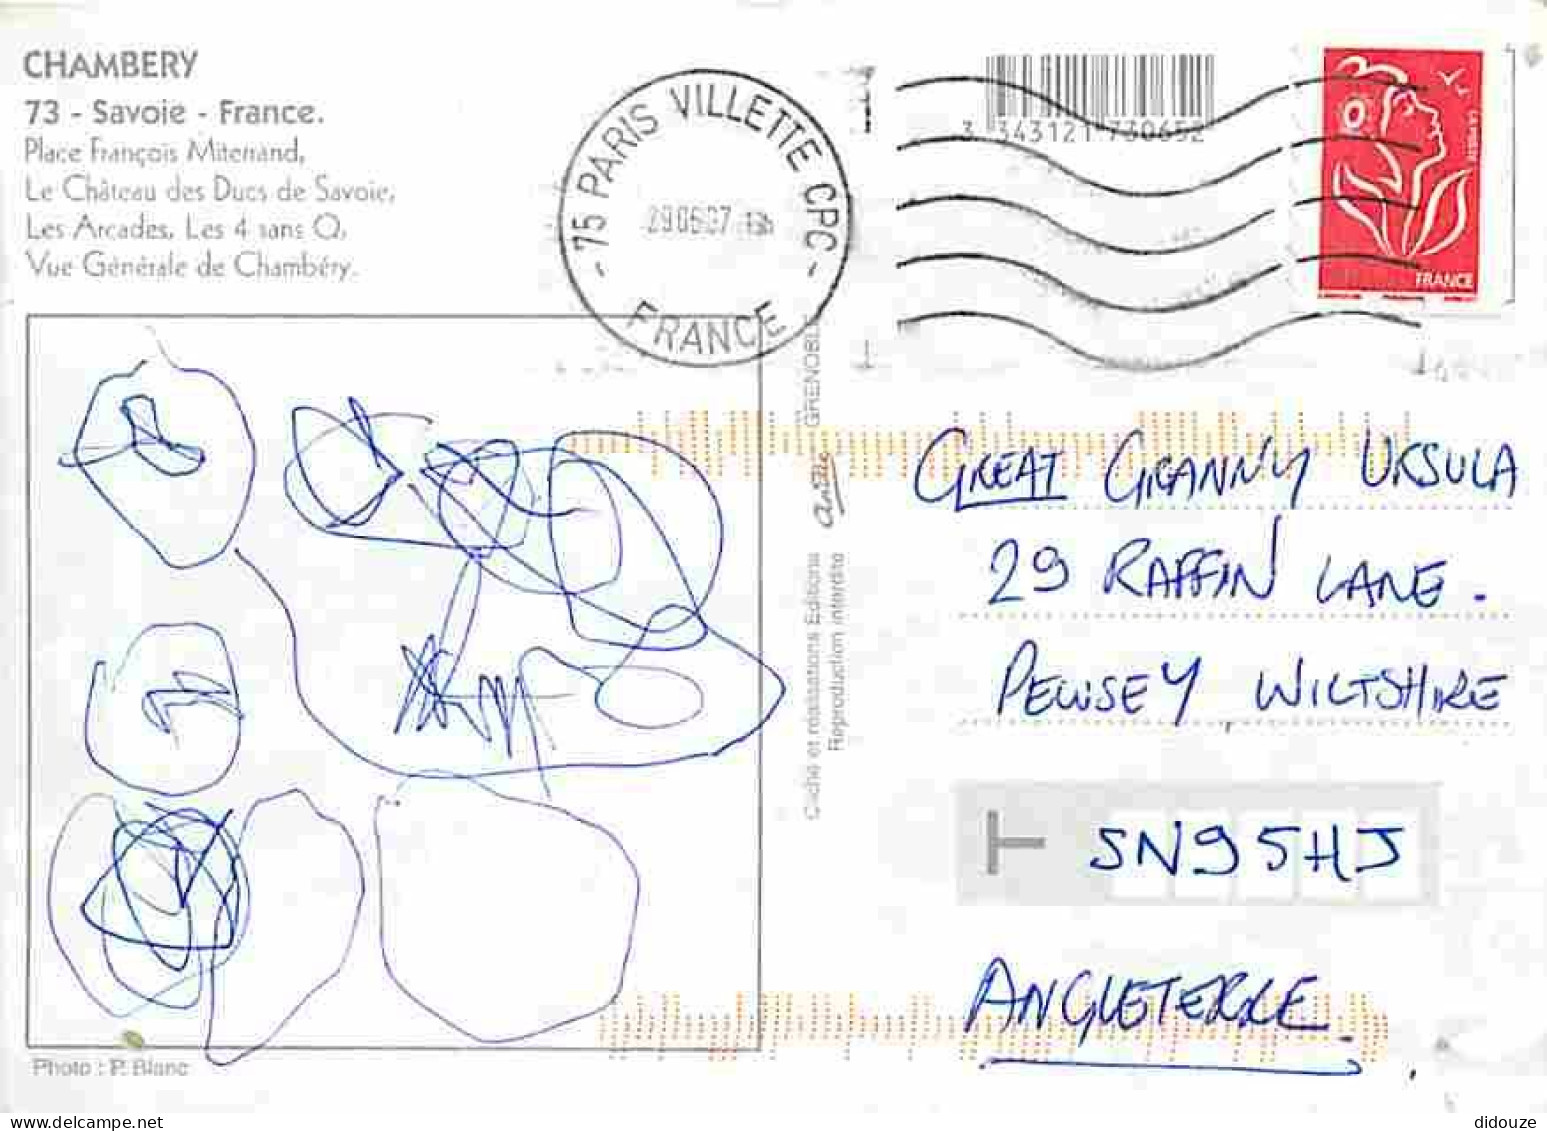 CHAMBERY
73 - Savoie - France.
Place François Miterrand,
Le Château des Ducs de Savoie,
Les Arcades, Les 4 sans Q,
Vue Générale de Chambéry.
- 75 PARIS VILLETTE CPC -
FRANCE
3 343121 730652
FRANCE
GREAT GRANNY URSULA
29 RAFFIN LANE.
PEWSEY, WILTSHIRE
SN9 5HJ
ANGLETERRE
GRENOBLE
Cliché et réalisations Editions
Reproduction interdite
Photo : P. Blanc
didouze